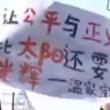 让公平与正义
比太阳还要
光辉
—温家宝